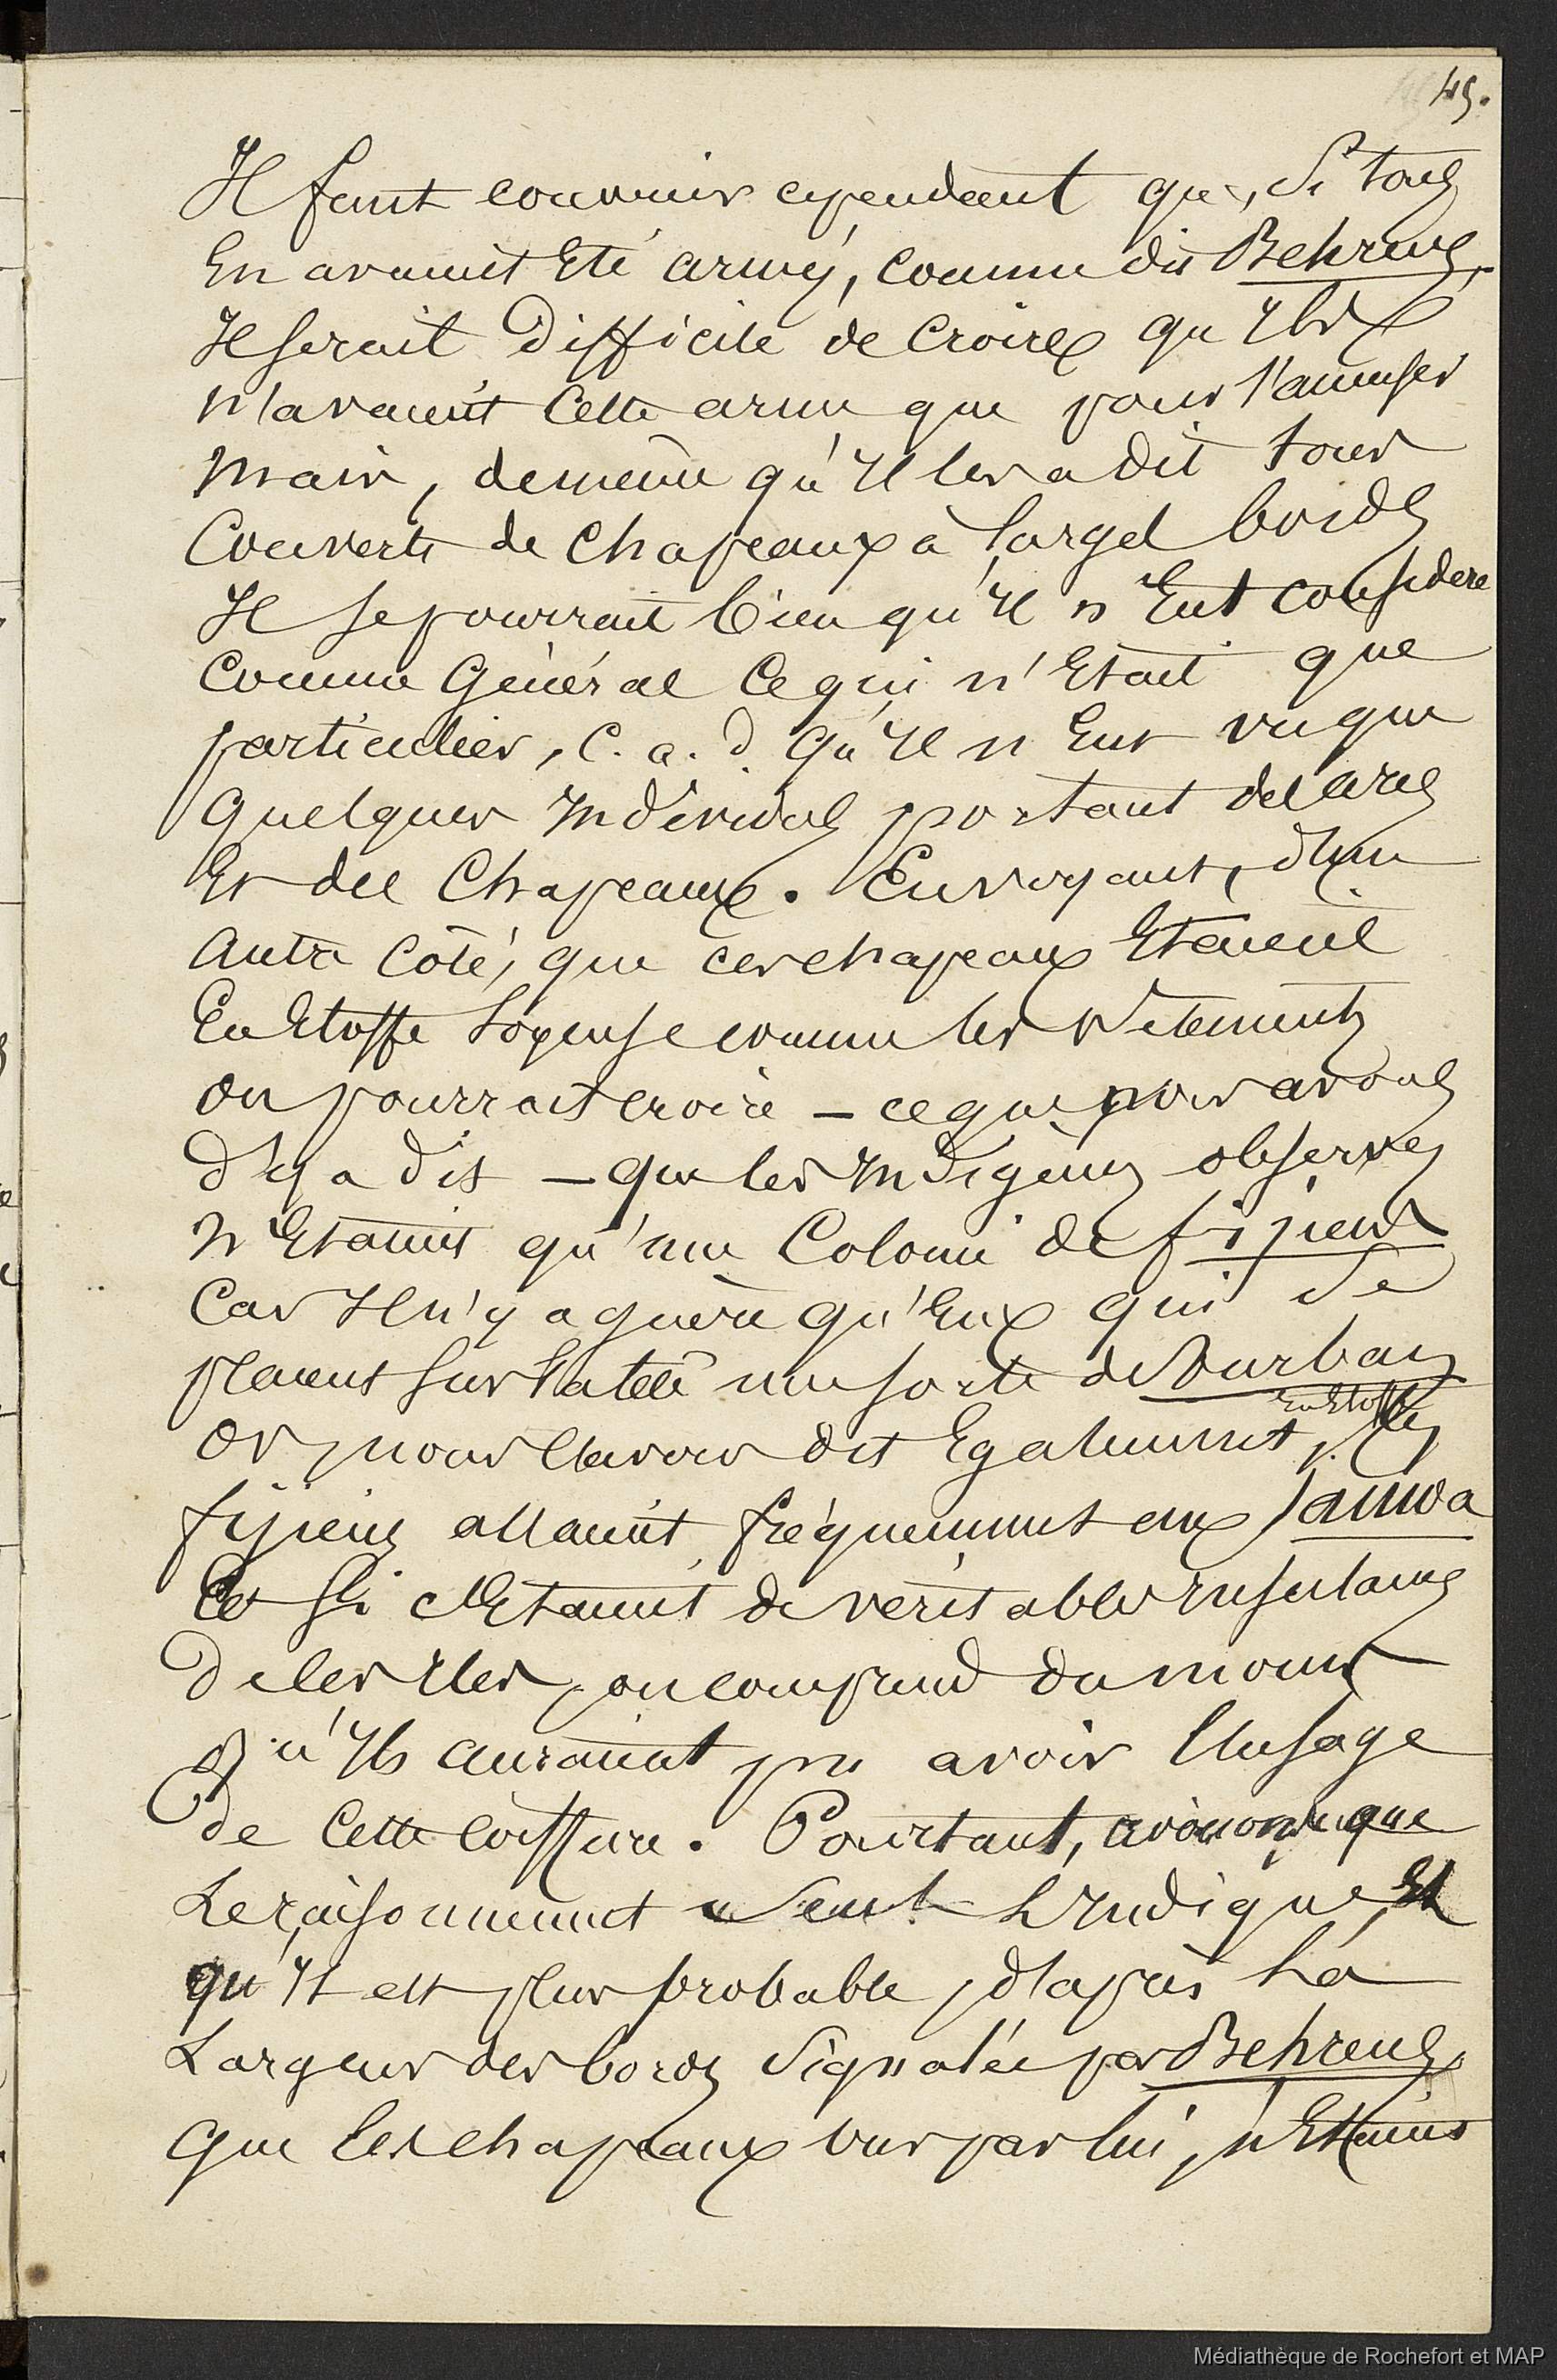 45.
Il faut convenir cependant que, si tous
En avaient Eté armés, comme dit Behrens,
Il serait difficile de croire qu'Ils
n'avaient cette arme que pour s'amuser
mais, de même qu'Il les a dit tous
Couverts de Chapeaux à larges bords
Il se pourrait bien qu'Il n'Eut considéré
Comme Général ce qui n'Etait que
particulier, c. a. d. qu'Il n'Eut vu que
quelques Individus portant des arcs
Et des Chapeaux. En voyant, d'un
autre côté, que ces chapeaux Etaient
En Etoffe soyeuse comme les vêtements
on pourrait croire — ce que nous avons
déja dit — que les Indigènes observés
n'Etaient qu'une Colonie de fijiens
Car Il n'y a guère qu'Eux qui se
placent sur la tête une sorte de turban
En Etoffe
Or, nous l'avons dit Egalement, les
fijiens allaient fréquemment aux Samoa
Et si c'Etaient de véritables Insulaires
de ces Iles, on comprend du moins
qu'Ils auraient pu avoir l'usage
de cette coiffure. Pourtant, avouons que
Le raisonnement seul l'Indique, Et
qu'Il est plus probable, d'après la
Largeur des bords signalée par Behrens,
que les chapeaux vus par lui, n'Etaient
Médiathèque de Rochefort et MAP